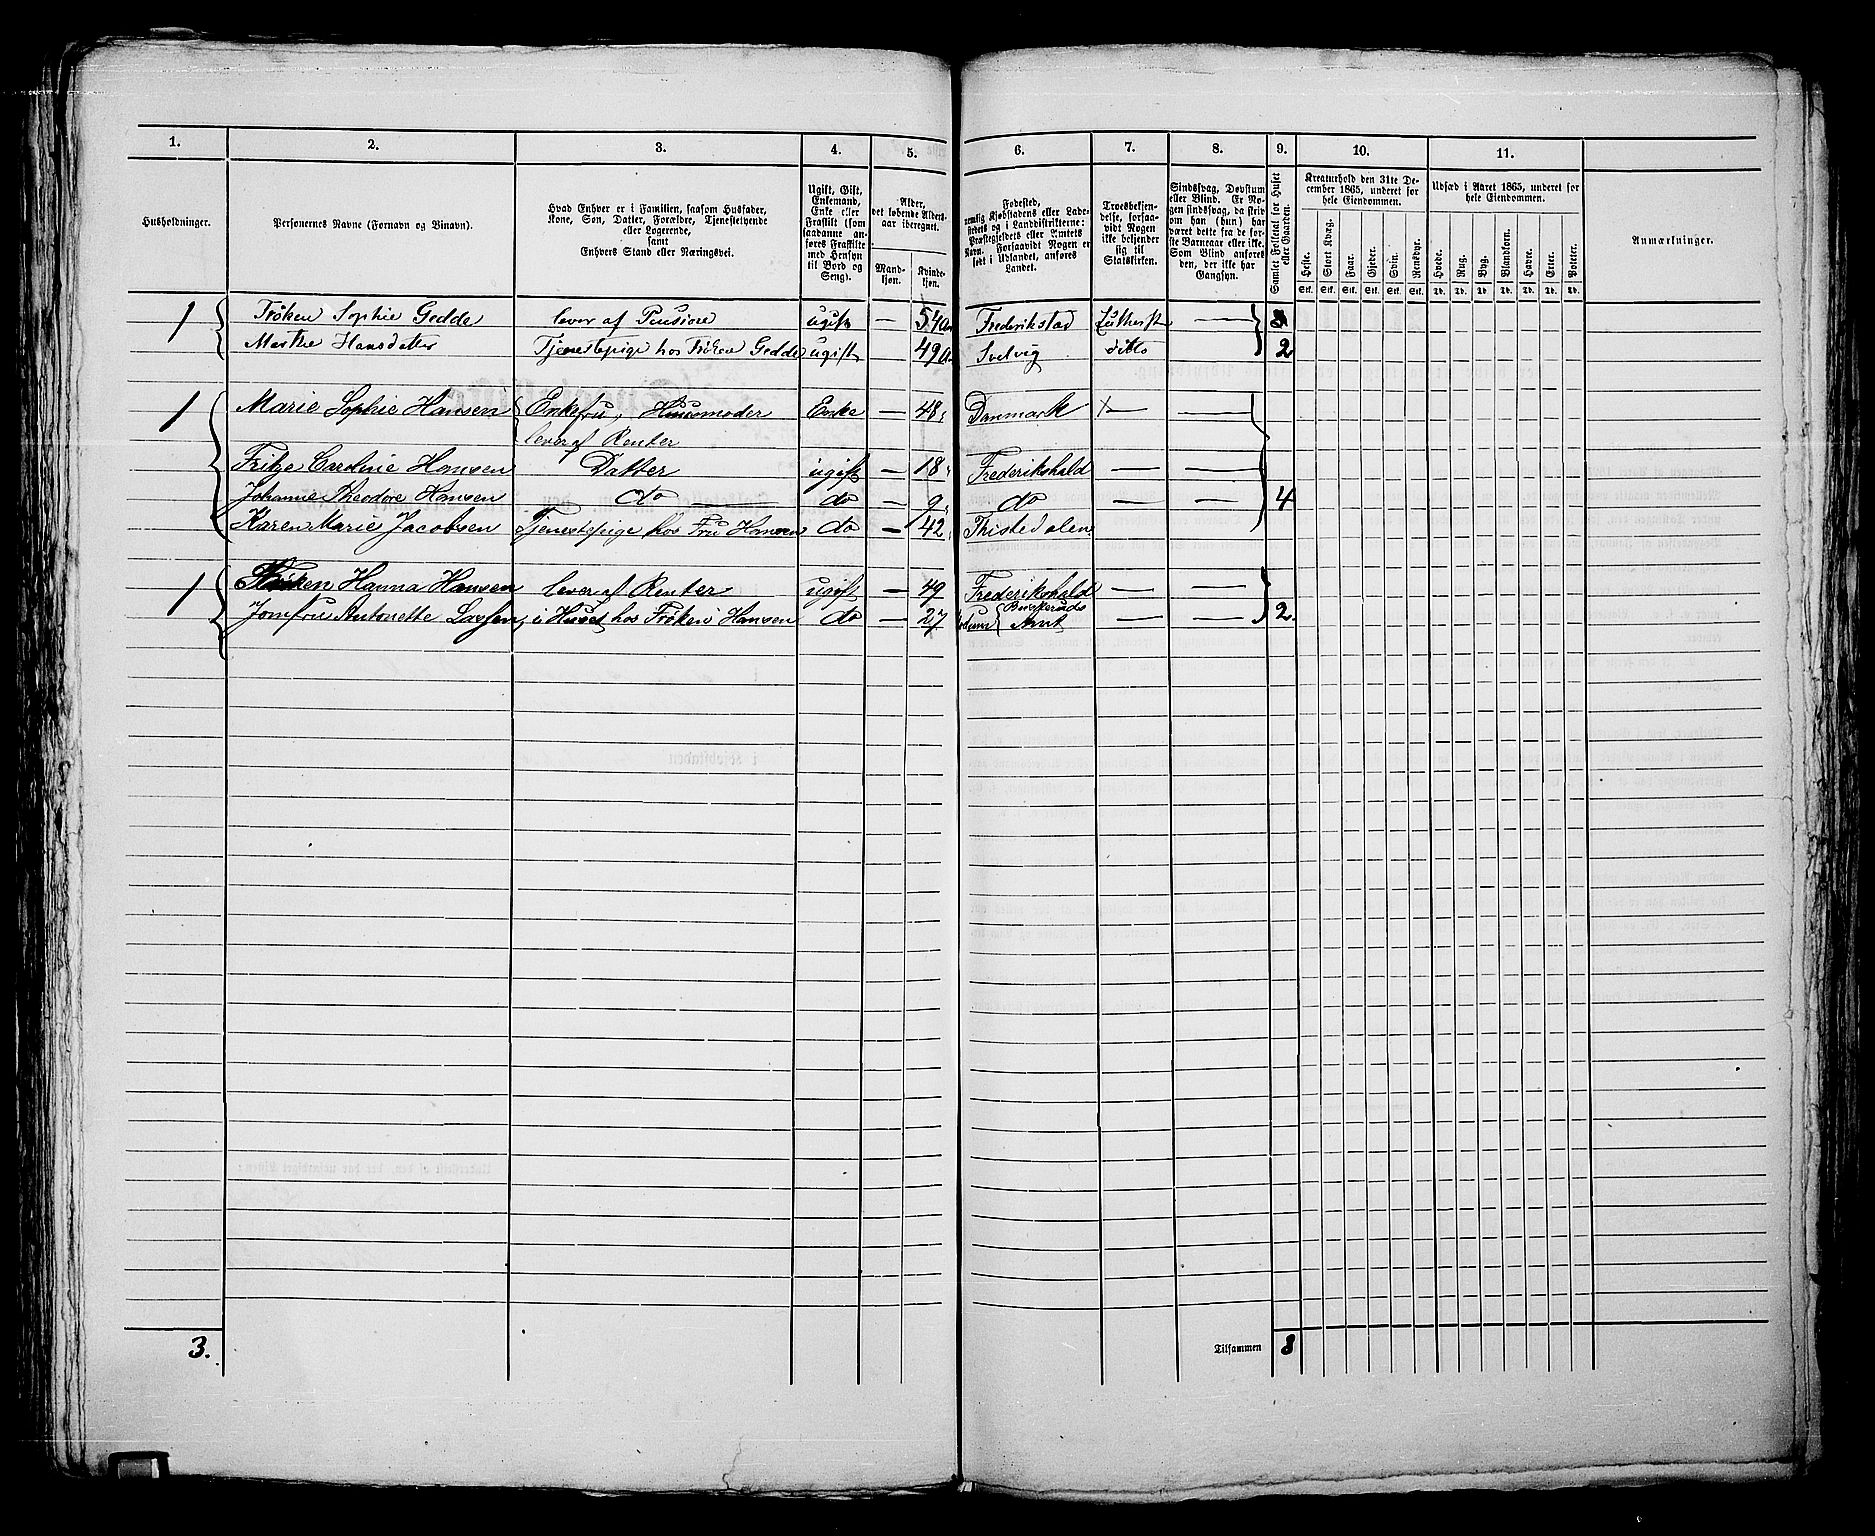 1. 2. 3. 4. 5. 6. 7. 8. 9. 10. 11.
Husholdninger.
Personernes Navne (Fornavn og Binavn).
Hvad Enhver er i Familien, saasom Husfader,
Kone, Søn, Datter, Forældre, Tjenestetyende
eller Logerende,
samt
Enhvers Stand eller Næringsvei.
Ugift, Gift,
Enkemand,
Enke eller
Fraskilt (som
saadanne an-
føres Fraskilte
med Hensyn
til Bord og
Seng).
Alder,
det løbende Alders-
aar iberegnet.
Mand-
kjøn.
Kvinde-
kjøn.
Fødested,
nemlig Kjøbstadens eller Lade-
stedets og i Landdistrikterne:
Præstegjeldets eller Amtets
Navn. Forsaavidt Nogen er
født i Udlandet, anføres
Landet.
Troesbekjen-
delse, forsaa-
vidt Nogen
ikke bekjender
sig til
Statskirken.
Sindssvag, Døvstum
eller Blind. Er No-
gen sindssvag, da skriv
om han (hun) har
været dette fra de før-
ste Barneaar eller ikke.
Som Blind anføres
den, der ikke har
Gangsyn.
Samlet Folketal for Huset
eller Gaarden.
Kreaturhold den 31te De-
cember 1865, underet for
hele Eiendommen.
Heste. Stort Kvæg. Faar. Gjeder. Svin. Rensdyr.
Stk. Stk. Stk. Stk. Stk. Stk.
Udsæd i Aaret 1865, underet for
hele Eiendommen.
Hvede. Rug. Byg. Blandkorn. Havre. Erter. Poteter.
Td. Td. Td. Td. Td. Td. Td.
Anmærkninger.
1 Frøken Sophie Gedde lever af Pensione ugift — 54 Frederikstad Luthersk —
Marthe Hansdatter Tjenestepige hos Frøken Gedde ugift 49 Svelvig ditto 2
1 Marie Sophie Hansen Enkefru, Huusmoder Enke — 48 Danmark — —
lever af Renter
Fritze Caroline Hansen Datter ugift — 18 Frederikshald — —
Johanne Theodore Hansen do do — 9 do — — 4
Karen Marie Jacobsen Tjenestepige hos Fru Hansen do — 42 Thistedalen
1 Frøken Hanna Hansen lever af Renter ugift — 49 Frederikshald — —
Buskeruds
Jomfru Antonette Larsen i Huset hos Frøken Hansen do — 27 Amt — — 2
3. Tilsammen 8